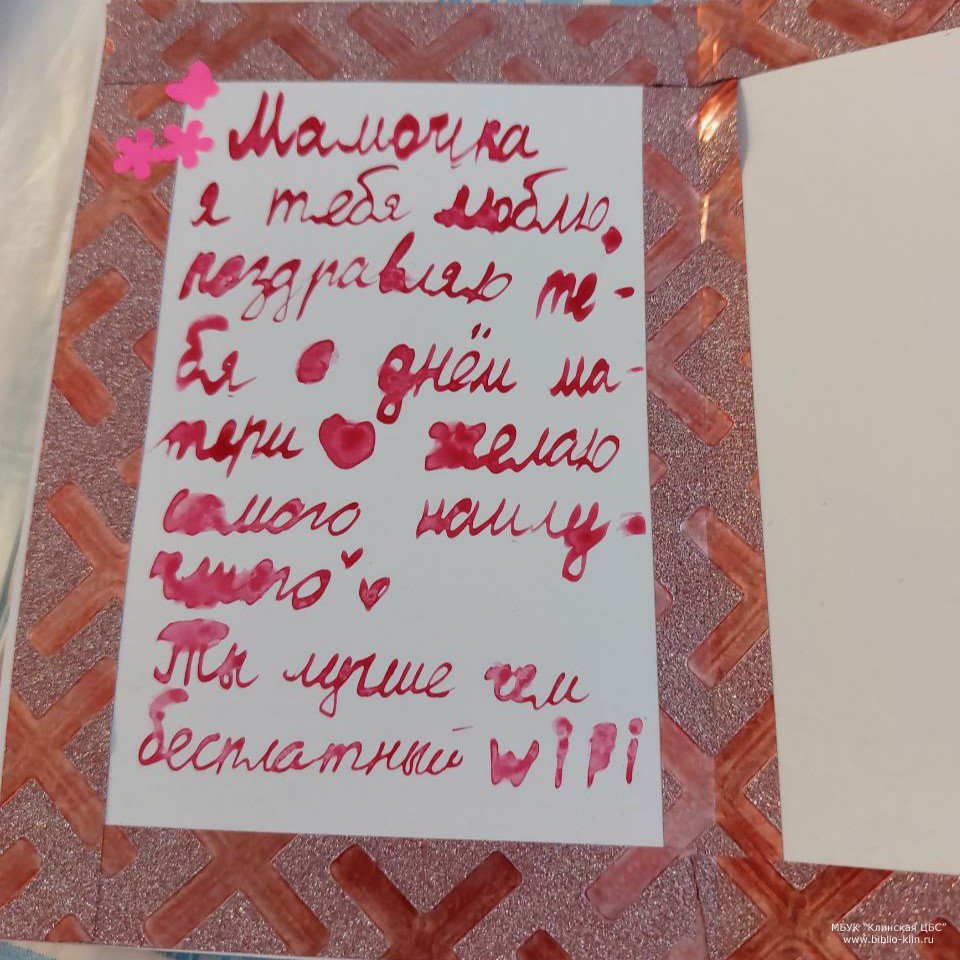 Мамочка
я тебя люблю,
поздравляю те-
бя с днём ма-
тери желаю
самого наилу-
чшего
Ты лучше чем
бесплатный wifi
МБУК "Клинская ЦБС"
www.biblio-klin.ru